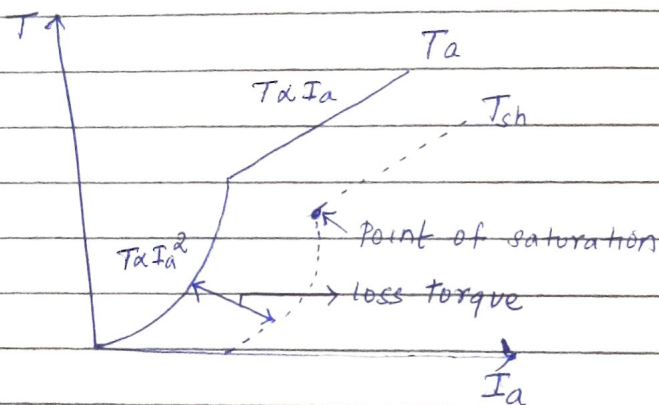 T
Ta
T∝Ia
Tsh
Point of saturation
T∝Ia²
loss torque
Ia